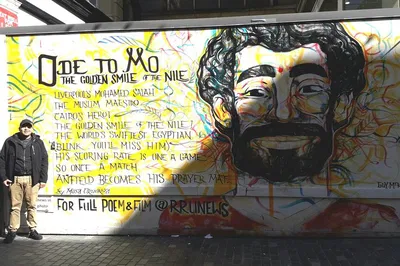 ODE TO MO
THE GOLDEN SMILE OF THE NILE
LIVERPOOL'S MOHAMED SALAH
THE MUSLIM MAESTRO
CAIRO'S HERO!
THE GOLDEN SMILE OF THE NILE
THE WORLD'S SWIFTEST EGYPTIAN
(BLINK YOU'LL MISS HIM)
HIS SCORING RATE IS ONE A GAME
SO ONCE A MATCH
ANFIELD BECOMES HIS PRAYER MAT.
By MUSA
FOR FULL POEM & FILM @RRUNEWS